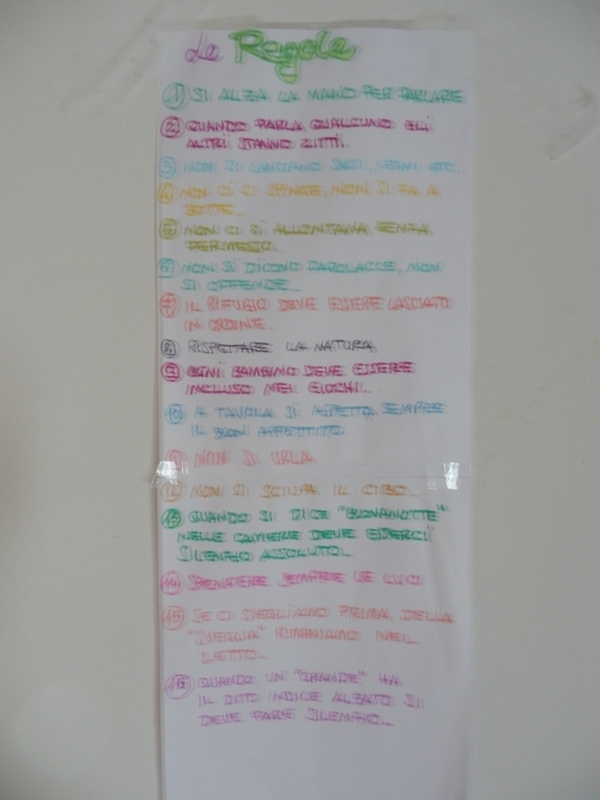 Le Regole
1) SI ALZA LA MANO PER PARLARE
2) QUANDO PARLA QUALCUNO GLI
ALTRI STANNO ZITTI..
3) NON SI LANCIANO SASSI, LEGNI ETC..
4) NON CI SI SPINGE, NON SI FA A
BOTTE..
5) NON CI SI ALLONTANA SENZA
PERMESSO..
6) NON SI DICONO PAROLACCE, NON
SI OFFENDE..
7) IL RIFUGIO DEVE ESSERE LASCIATO
IN ORDINE..
8) RISPETTARE LA NATURA
9) OGNI BAMBINO DEVE ESSERE
INCLUSO NEI GIOCHI..
10) A TAVOLA SI ASPETTA SEMPRE
IL BUON APPETTITO.
11) NON SI URLA
12) NON SI SCIUPA IL CIBO..
13) QUANDO SI DICE "BUONANOTTE"
NELLE CAMERE DEVE ESSERCI
SILENZIO ASSOLUTO..
14) SPENGERE SEMPRE LE LUCI
15) SE CI SVEGLIAMO PRIMA DELLA
"SVEGLIA" RIMANIAMO NEL
LETTO..
16) QUANDO UN "GRANDE" HA
IL DITO INDICE ALZATO SI
DEVE FARE SILENZIO..